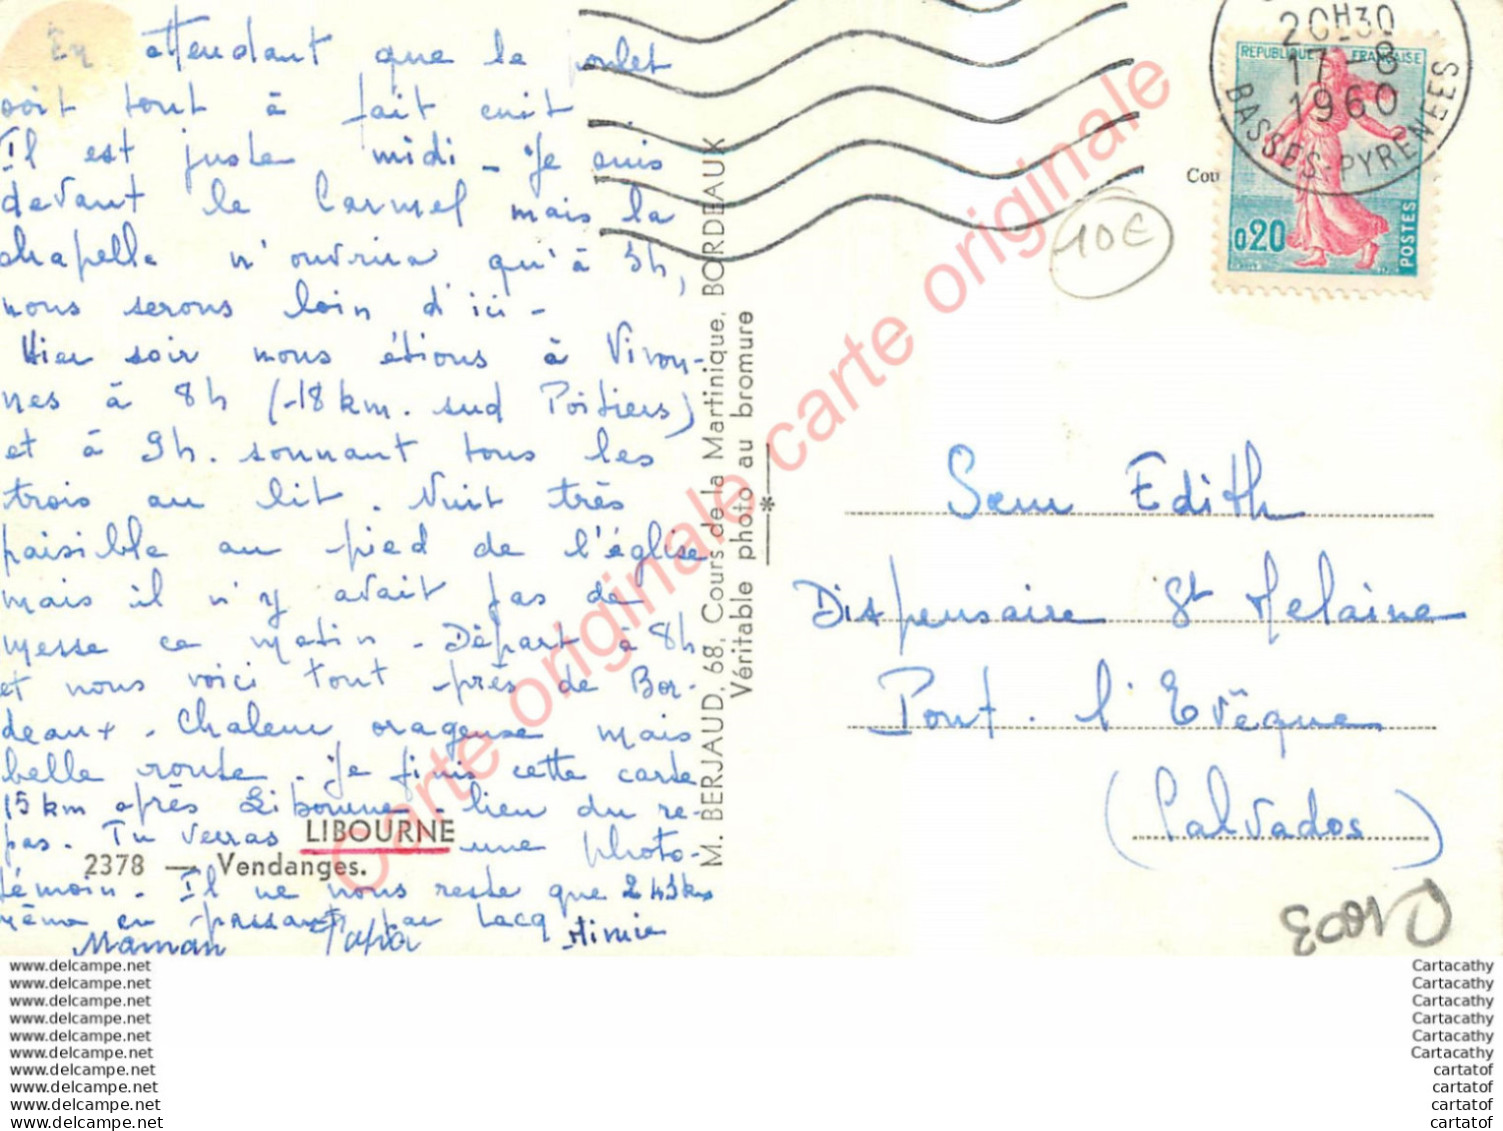 En attendant que le poulet
soit tout à fait cuit
Il est juste midi - Je suis
devant le Carmel mais la
chapelle n'ouvrira qu'à 3h,
nous serons loin d'ici -
Hier soir nous étions à Vivon-
nes à 8h (-18 km. sud Poitiers)
et à 9h. sonnant tous les
trois au lit. Nuit très
paisible au pied de l'église
mais il n'y avait pas de
messe ce matin - Départ à 8h
et nous voici tout près de Bor-
deaux - Chaleur orageuse mais
belle route. Je finis cette carte
15 km après Libourne - lieu du re-
pas. Tu verras une photo-
témoin. Il ne nous reste que 243 km
même en passant par Lacq
Maman Papa Mimie
LIBOURNE
2378 — Vendanges.
M. BERJAUD, 68, Cours de la Martinique, BORDEAUX
Véritable photo au bromure
Carte originale carte originale
20H30
17-8
1960
BASSES-PYRENEES
REPUBLIQUE FRANÇAISE
0,20
POSTES
Cou
10€
Sœur Edith
Dispensaire St Melaine
Pont-l'Evêque
(Calvados)
www.delcampe.net
www.delcampe.net
www.delcampe.net
www.delcampe.net
www.delcampe.net
www.delcampe.net
www.delcampe.net
www.delcampe.net
www.delcampe.net
www.delcampe.net
Cartacathy
Cartacathy
Cartacathy
Cartacathy
Cartacathy
Cartacathy
cartatof
cartatof
cartatof
cartatof